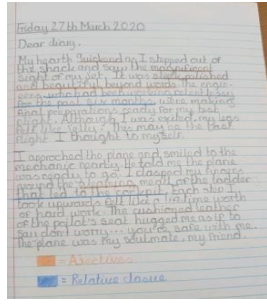 Friday 27th March 2020
Dear diary,
My hearth quickend as I stepped out of
the shack and saw the magnificent
sight of my jet. It was sleek, polished
and beautiful beyond words. The engin-
eers, which had been working
for the past six months, were making
final preparations ready for my test
flight. Although I was excited, my legs
felt like jelly. This may be the last
flight I thought to myself.
I approched the plane and smiled to the
mechanic nearby. He told me the plane
was ready to go. I clasped my fingers
around the metal of the ladder
that led to the cockpit. Each step I
took upwards felt like a lifetime worth
of hard work. The cushioned leather
of the pilot's seat hugged me as if to
say don't worry... you're safe with me.
The plane was my soulmate, my friend.
= Adjectives
= Relative clause